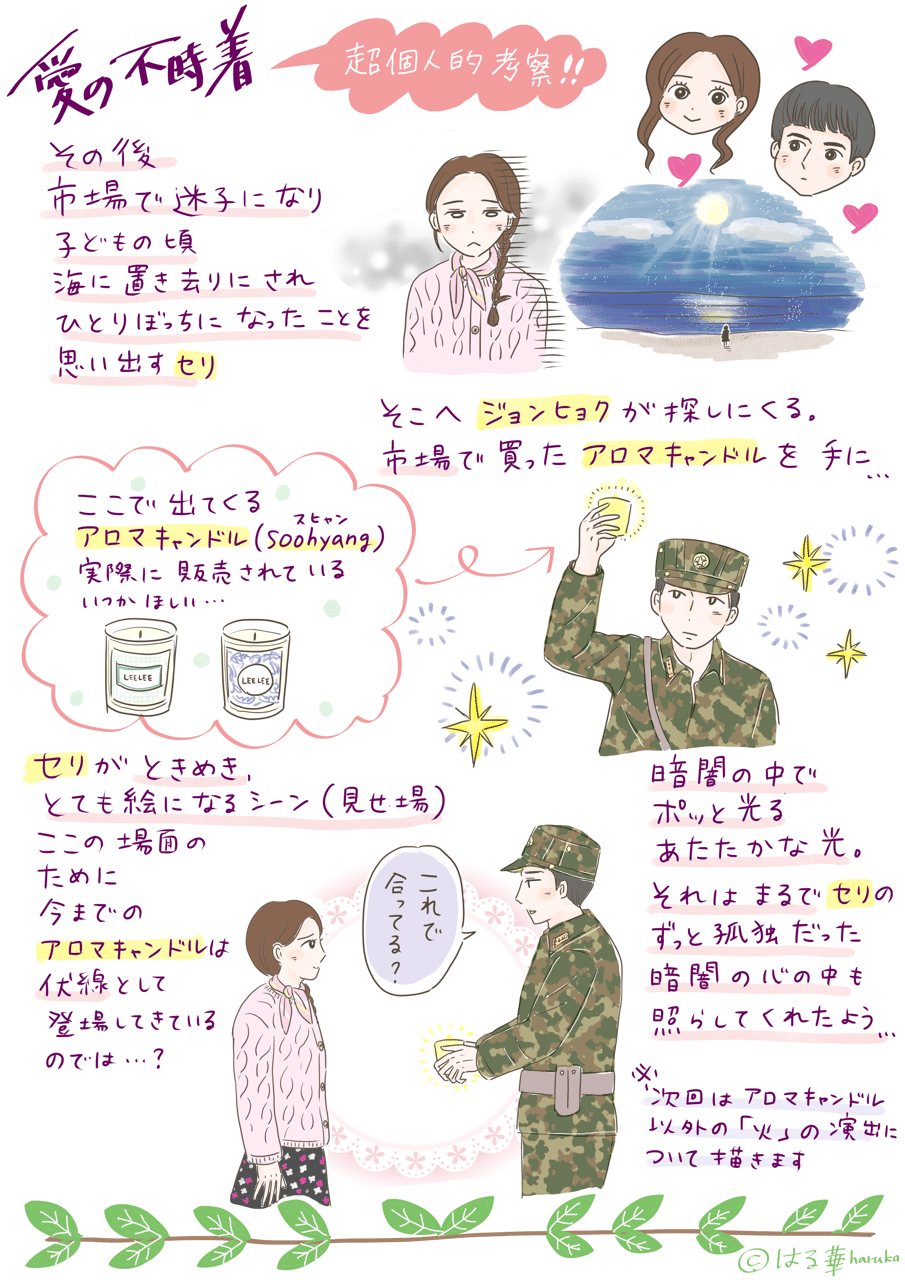 愛の不時着
超個人的考察!!
その後
市場で迷子になり
子どもの頃
海に置き去りにされ
ひとりぼっちになったことを
思い出すセリ
そこへ ジョンヒョクが探しにくる。
市場で買ったアロマキャンドルを手に…
ここで出てくる
スヒャン
アロマキャンドル(soohyang)
実際に販売されている
いつかほしい…
LEELEE
LEELEE
セリがときめき、
とても絵になるシーン(見せ場)
ここの場面の
ために
今までの
アロマキャンドルは
伏線として
登場してきている
のでは…?
これで
合ってる?
暗闇の中で
ポッと光る
あたたかな光。
それはまるでセリの
ずっと孤独だった
暗闇の心の中も
照らしてくれたよう…
※
次回はアロマキャンドル
以外の「火」の演出に
ついて描きます
©はる華haruka